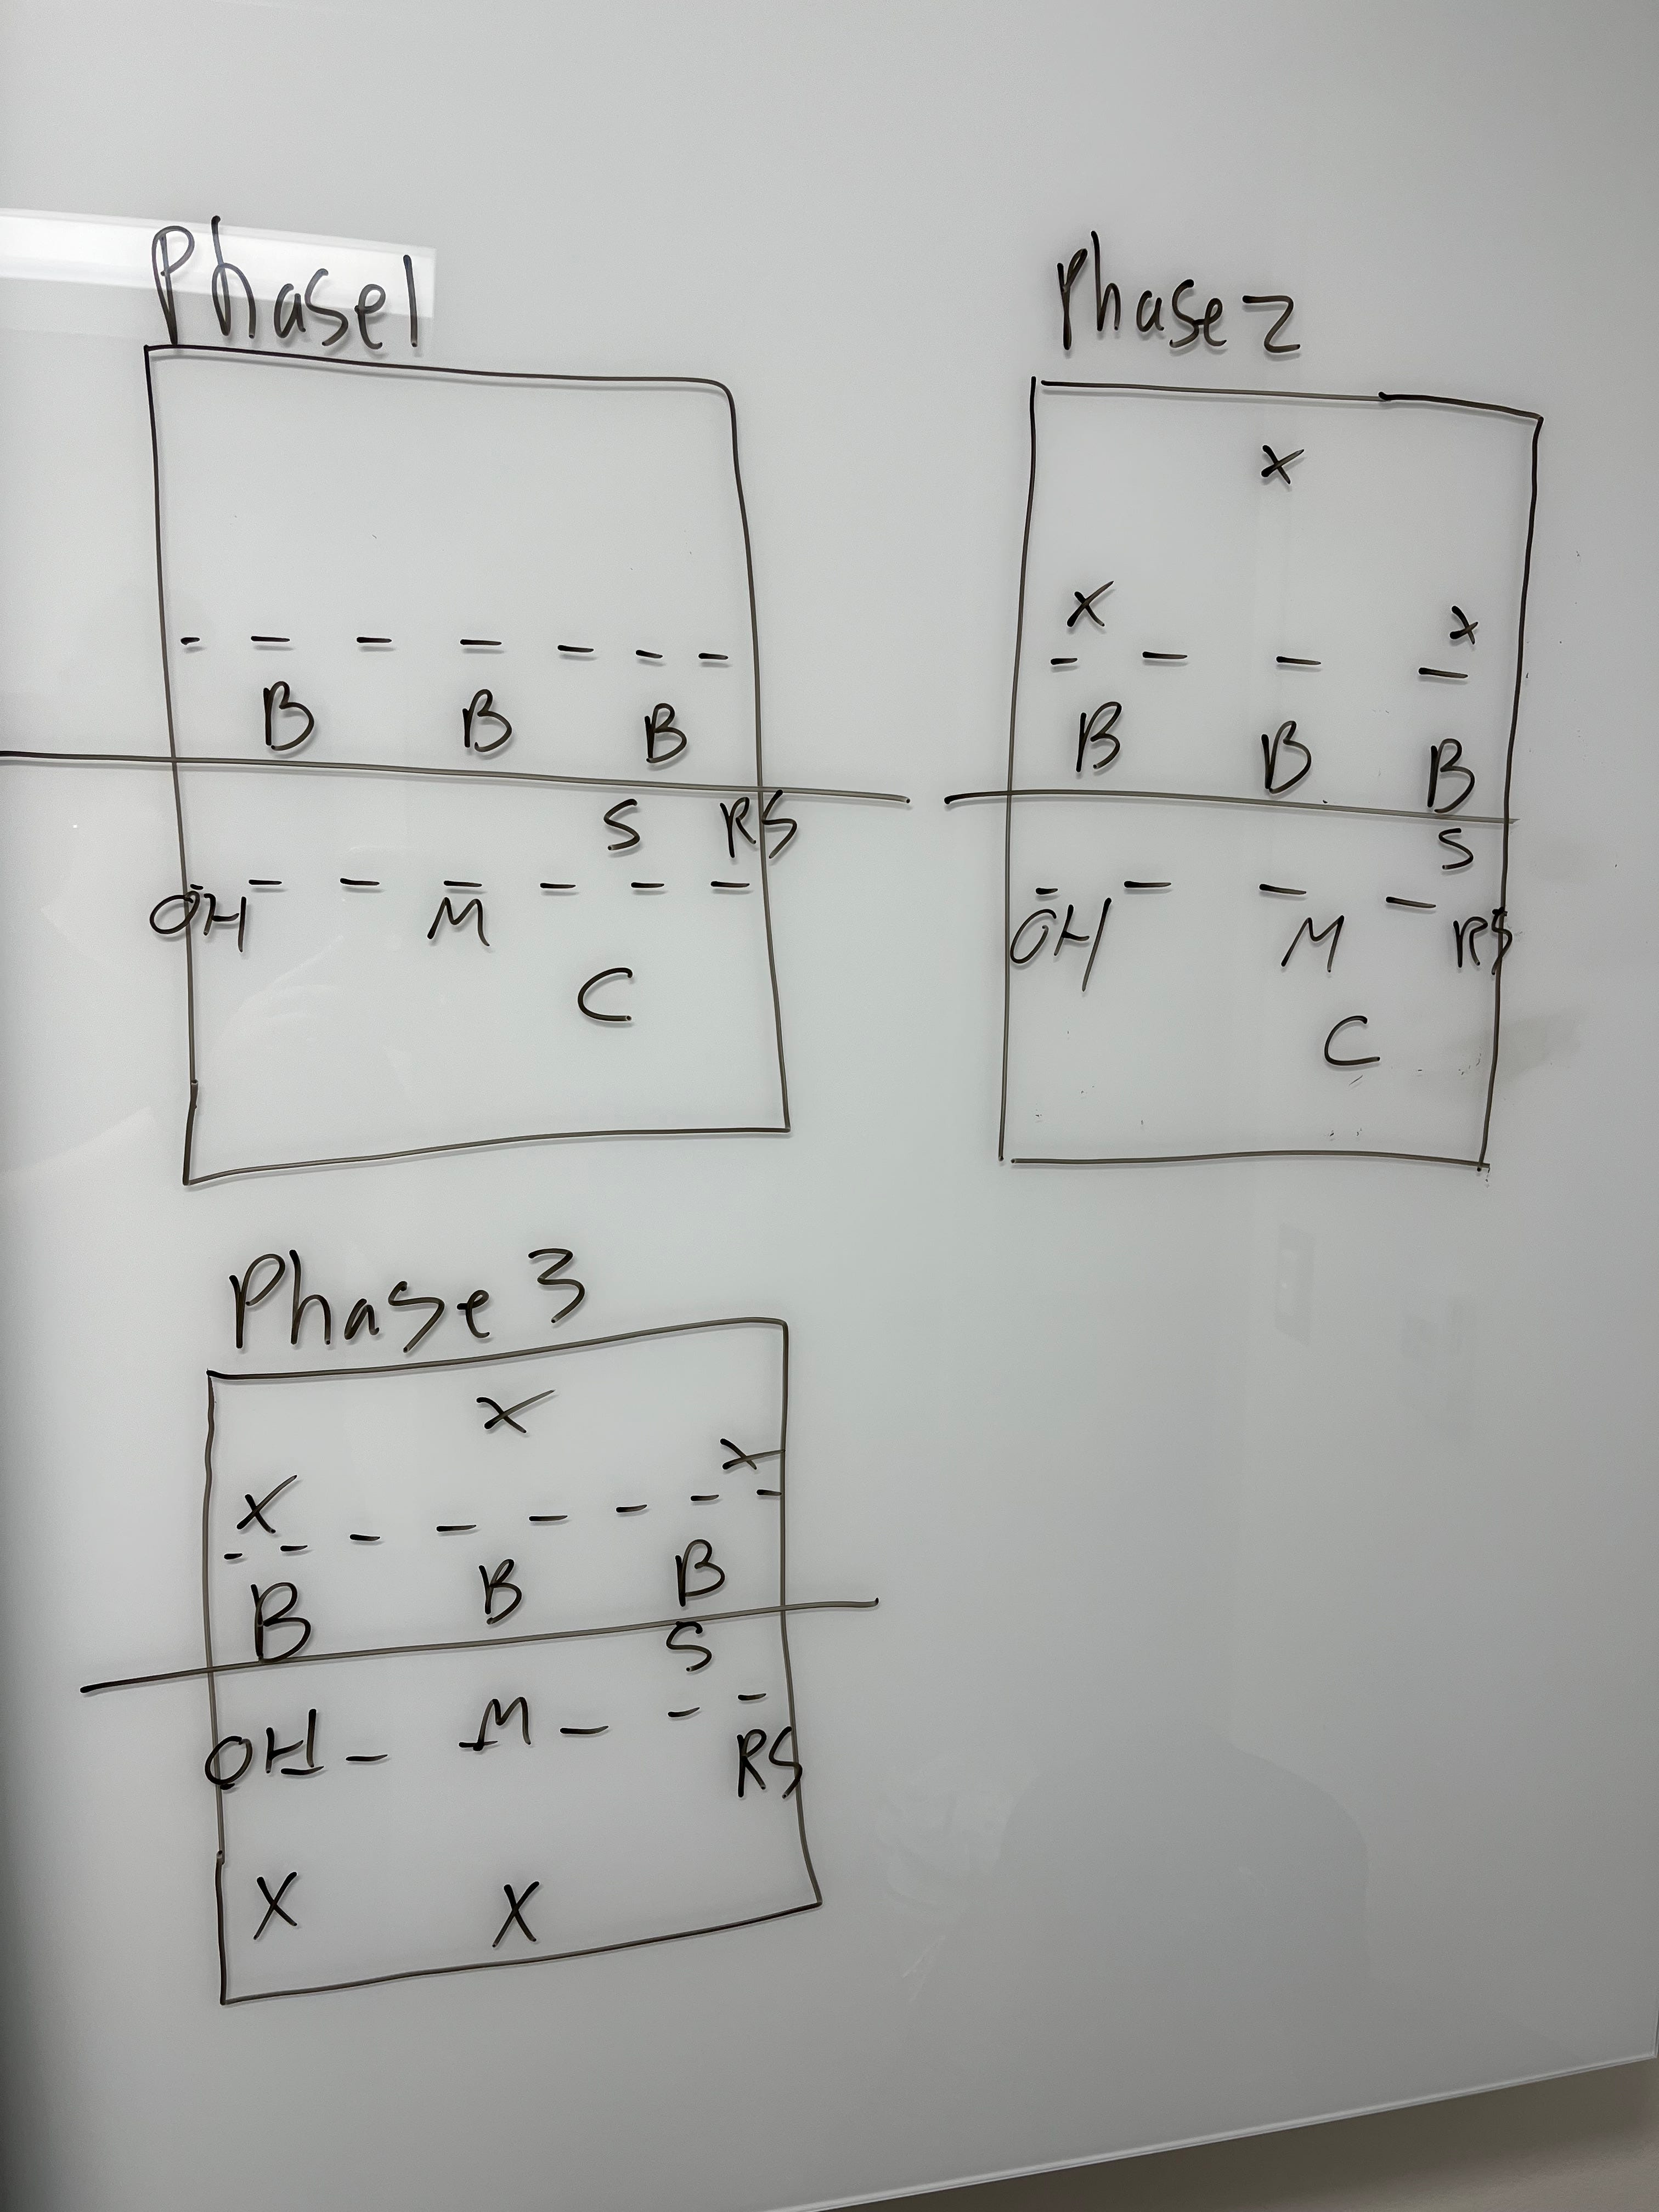 Phase 1
B B B
S RS
OH M
C
Phase 2
X
X X
B B B
S
OH M RS
C
Phase 3
X
X
X
B B B
S
OH M RS
X X